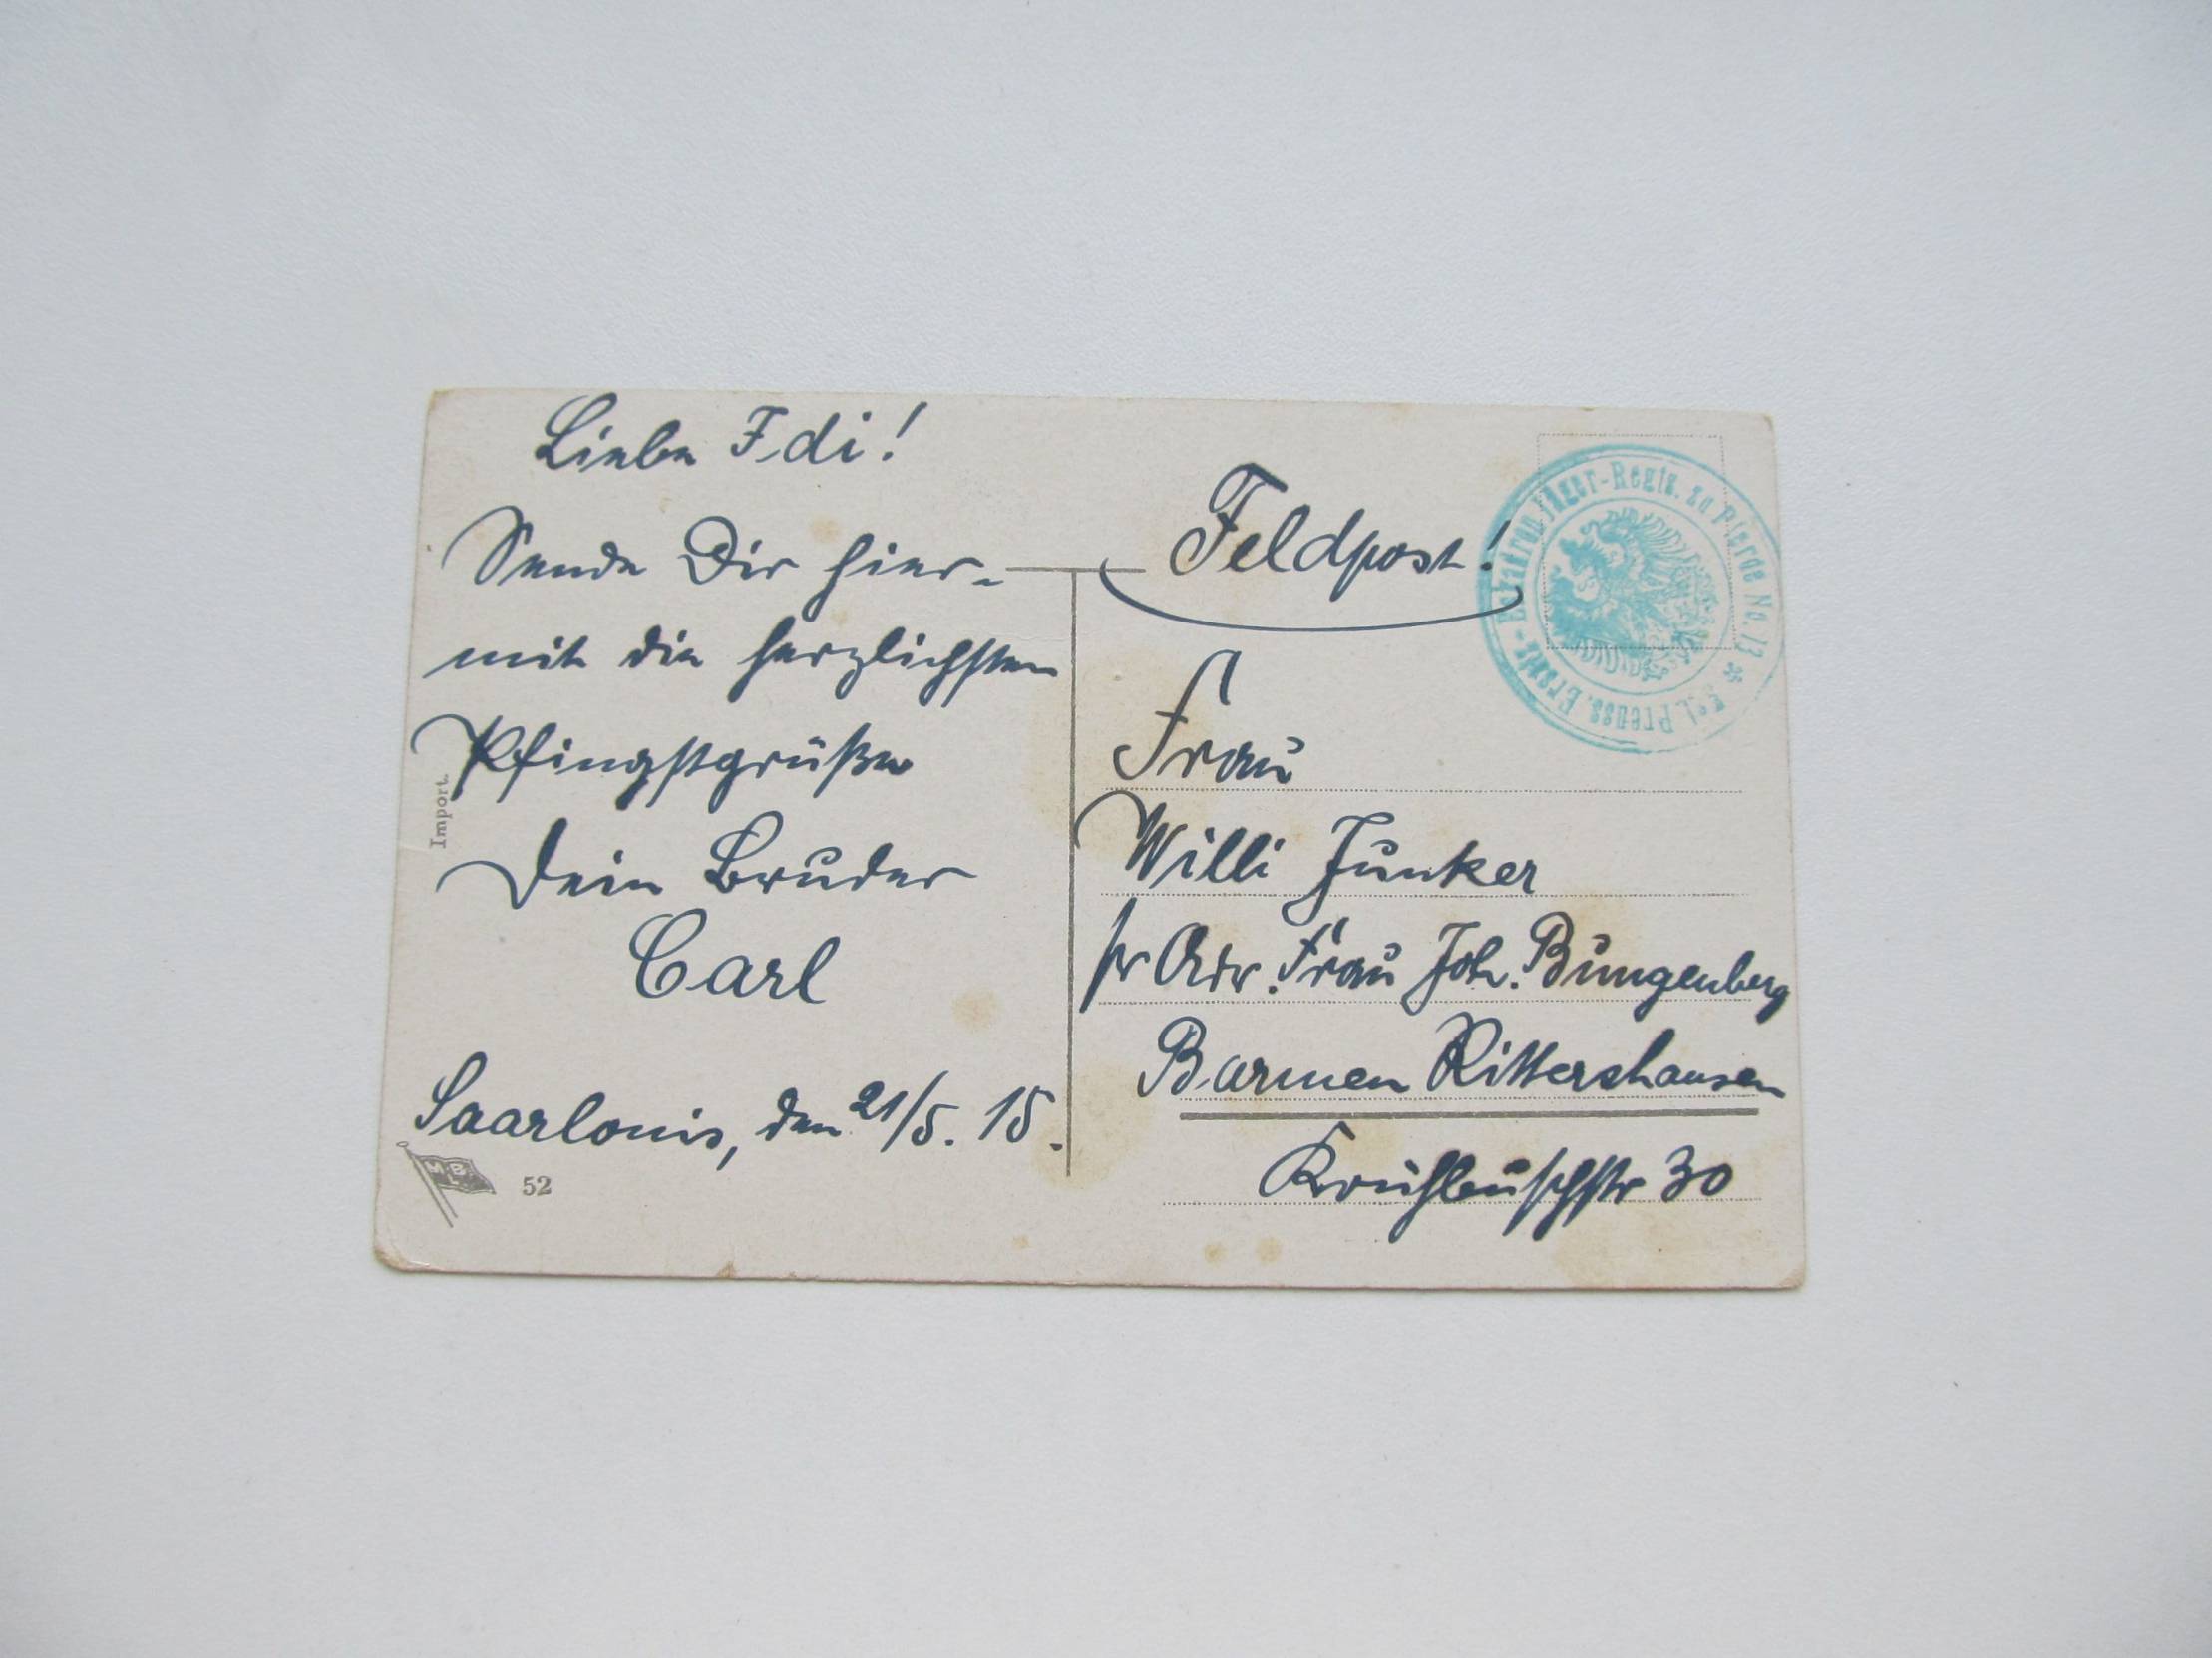 Liebe Idi!
Sende Dir hier-
mit die herzlichsten
Pfingstgrüße
Dein Bruder
Carl
Saarlouis, den 21/5. 15.
Import.
M.B.L.
52
Feldpost!
Kgl. Preuss. Ersatz-Eskadron Jäger-Regts. zu Pferde No. 13 *
Frau
Willi Junker
pr Adr. Frau Joh. Bungenberg
Barmen Rittershausen
30